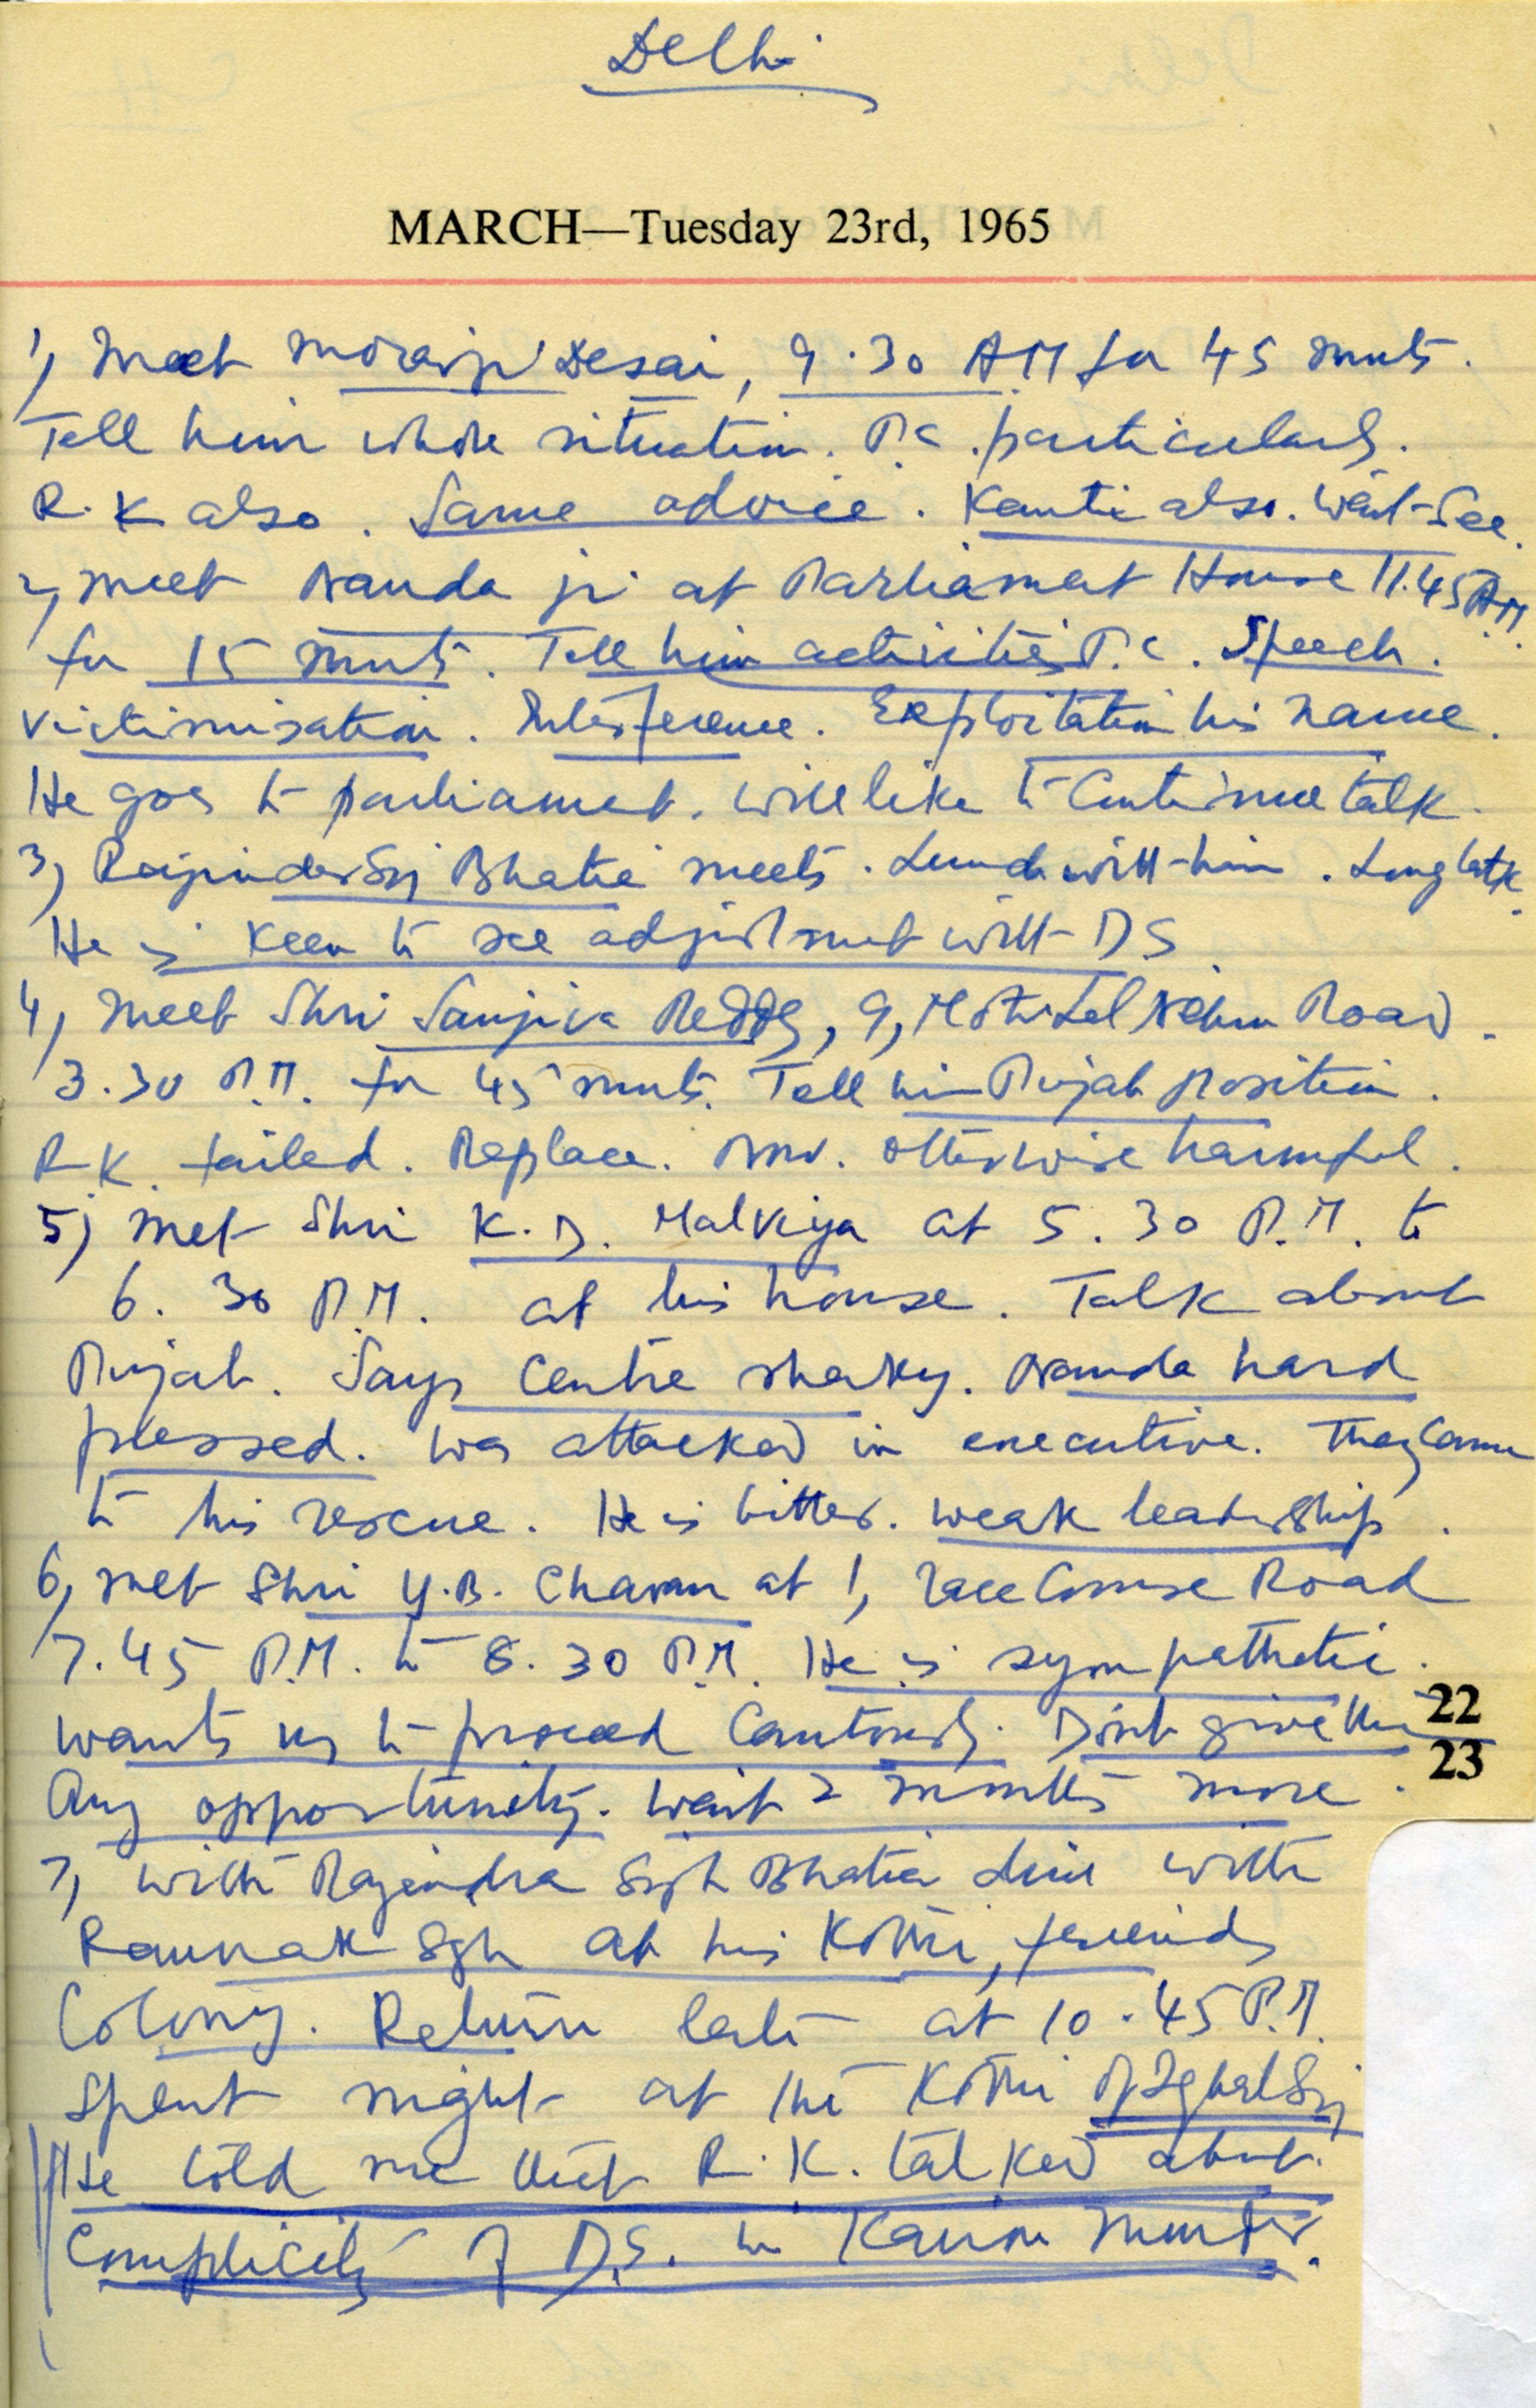 Delhi
MARCH—Tuesday 23rd, 1965
1) Meet Morarji Desai, 9.30 AM for 45 mnts.
Tell him whole situation. P.C. particularly.
R.K also. Same advice. Kanti also. Wait-See.
2) Meet Nanda ji at Parliament House 11.45 AM.
for 15 mnts. Tell him activities P.C. Speech.
Victimisation. Interference. Exploitation his name.
He goes to parliament. Will like to continue talk.
3) Rajinder Sij Bhatia meets. Lunch with him. Long talk.
He is keen to see adjustment with DS
4) Meet Shri Sanjiva Reddy, 9, Moti Lal Nehru Road.
3.30 P.M. for 45 mnts. Tell him Punjab Position.
R.K. failed. Replace. Now. otherwise harmful.
5) Met Shri K.D. Malviya at 5.30 P.M. to
6.30 P.M. at his house. Talk about
Punjab. Says Centre shaky. Nanda hard
pressed. Was attacked in executive. They came
to his rescue. He is bitter. Weak leadership.
6) Met Shri Y.B. Chavan at 1, Race Course Road
7.45 P.M. to 8.30 P.M. He is sympathetic.
Wants us to proceed Cautiously. Dont give them
Any opportunity. Wait 2 months more.
22
23
7) With Rajendra Sigh Bhatia dine with
Raunak Sgh at his Kothi, friends
Colony. Return late at 10.45 P.M.
Spent night at the Kothi of Iqbal Sij
He told me that R.K. talked about
Complicity of D.S. in Kairon Murder.